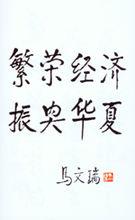 繁荣经济
振兴华夏
马文瑞